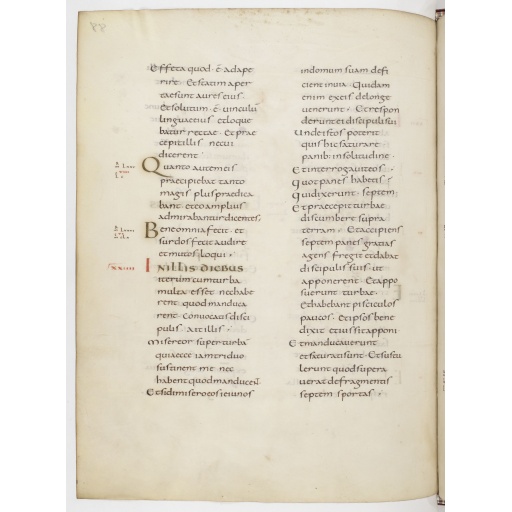 Effeta quod · ē adape
rire · Et statim aper
tae sunt aures eius ·
Et solutum · ē · uinculū
linguae eius et loque
batur recte · Et prae
cepit illis ne cui
dicerent ·
Quanto autem eis
praecipiebat tanto
magis plus praedica
bant · et eo amplius
admirabantur dicentes,
Bene omnia fecit · et
surdos fecit audire
et mutos loqui ·
In illis diebus
iterum cum turba
multa esset nec habe
rent quod manduca
rent · Conuocatis disci
pulis · ait illis ·
Misereor super turba
quia ecce iam triduo
sustinent me nec
habent quod manducent
Et si dimisero eos ieiunos
in domum suam defi
cient in uia · Quidam
enim ex eis de longe
uenerunt · Et respon
derunt ei discipuli sui
Unde istos poterit
quis hic saturare
panib: in solitudine ·
Et interrogauit eos ·
Quot panes habetis ·
Qui dixerunt · septem ·
Et praecepit turbae
discumbere supra
terram · Et accipiens
septem panes gratias
agens fregit et dabat
discipulis suis · ut
apponerent · Et appo
suerunt turbae ·
Et habebant pisciculos
paucos · Et ipsos bene
dixit et iussit apponi
Et manducauerunt
et saturati sunt · Et sustu
lerunt quod supera
uerat de fragmentis
septem sportas ·